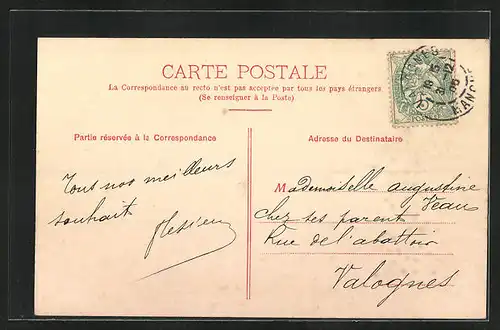 CARTE POSTALE
La Correspondance au recto n'est pas acceptée par tous les pays étrangers
(Se renseigner à la Poste)
Partie réservée à la Correspondance
Adresse du Destinataire
Tous nos meilleurs
souhait
Mademoiselle Augustine
Veau
chez ses parent
Rue de l'abattoir
Valognes